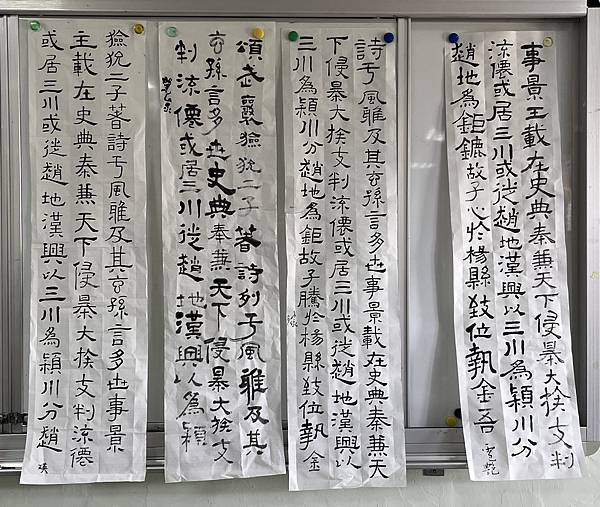 事景王載在史典秦兼天下侵暴大族支判
流僊或居三川或徙趙地漢興以三川為潁川分
趙地為鉅鏕故子心於楊縣致位執金吾
詩于風雅及其玄孫言多世事景載在史典秦兼天
下侵暴大族支判流僊或居三川或徙趙地漢興以
三川為潁川分趙地為鉅故子騰於楊縣致位執金
頌武襄獫狁二子著詩列于風雅及其
玄孫言多世史典秦兼天下侵暴大族支
判流僊或居三川徙趙地漢興以為潁
獫狁二子著詩于風雅及其玄孫言多世事景
主載在史典秦兼天下侵暴大族支判流僊
或居三川或徙趙地漢興以三川為潁川分趙